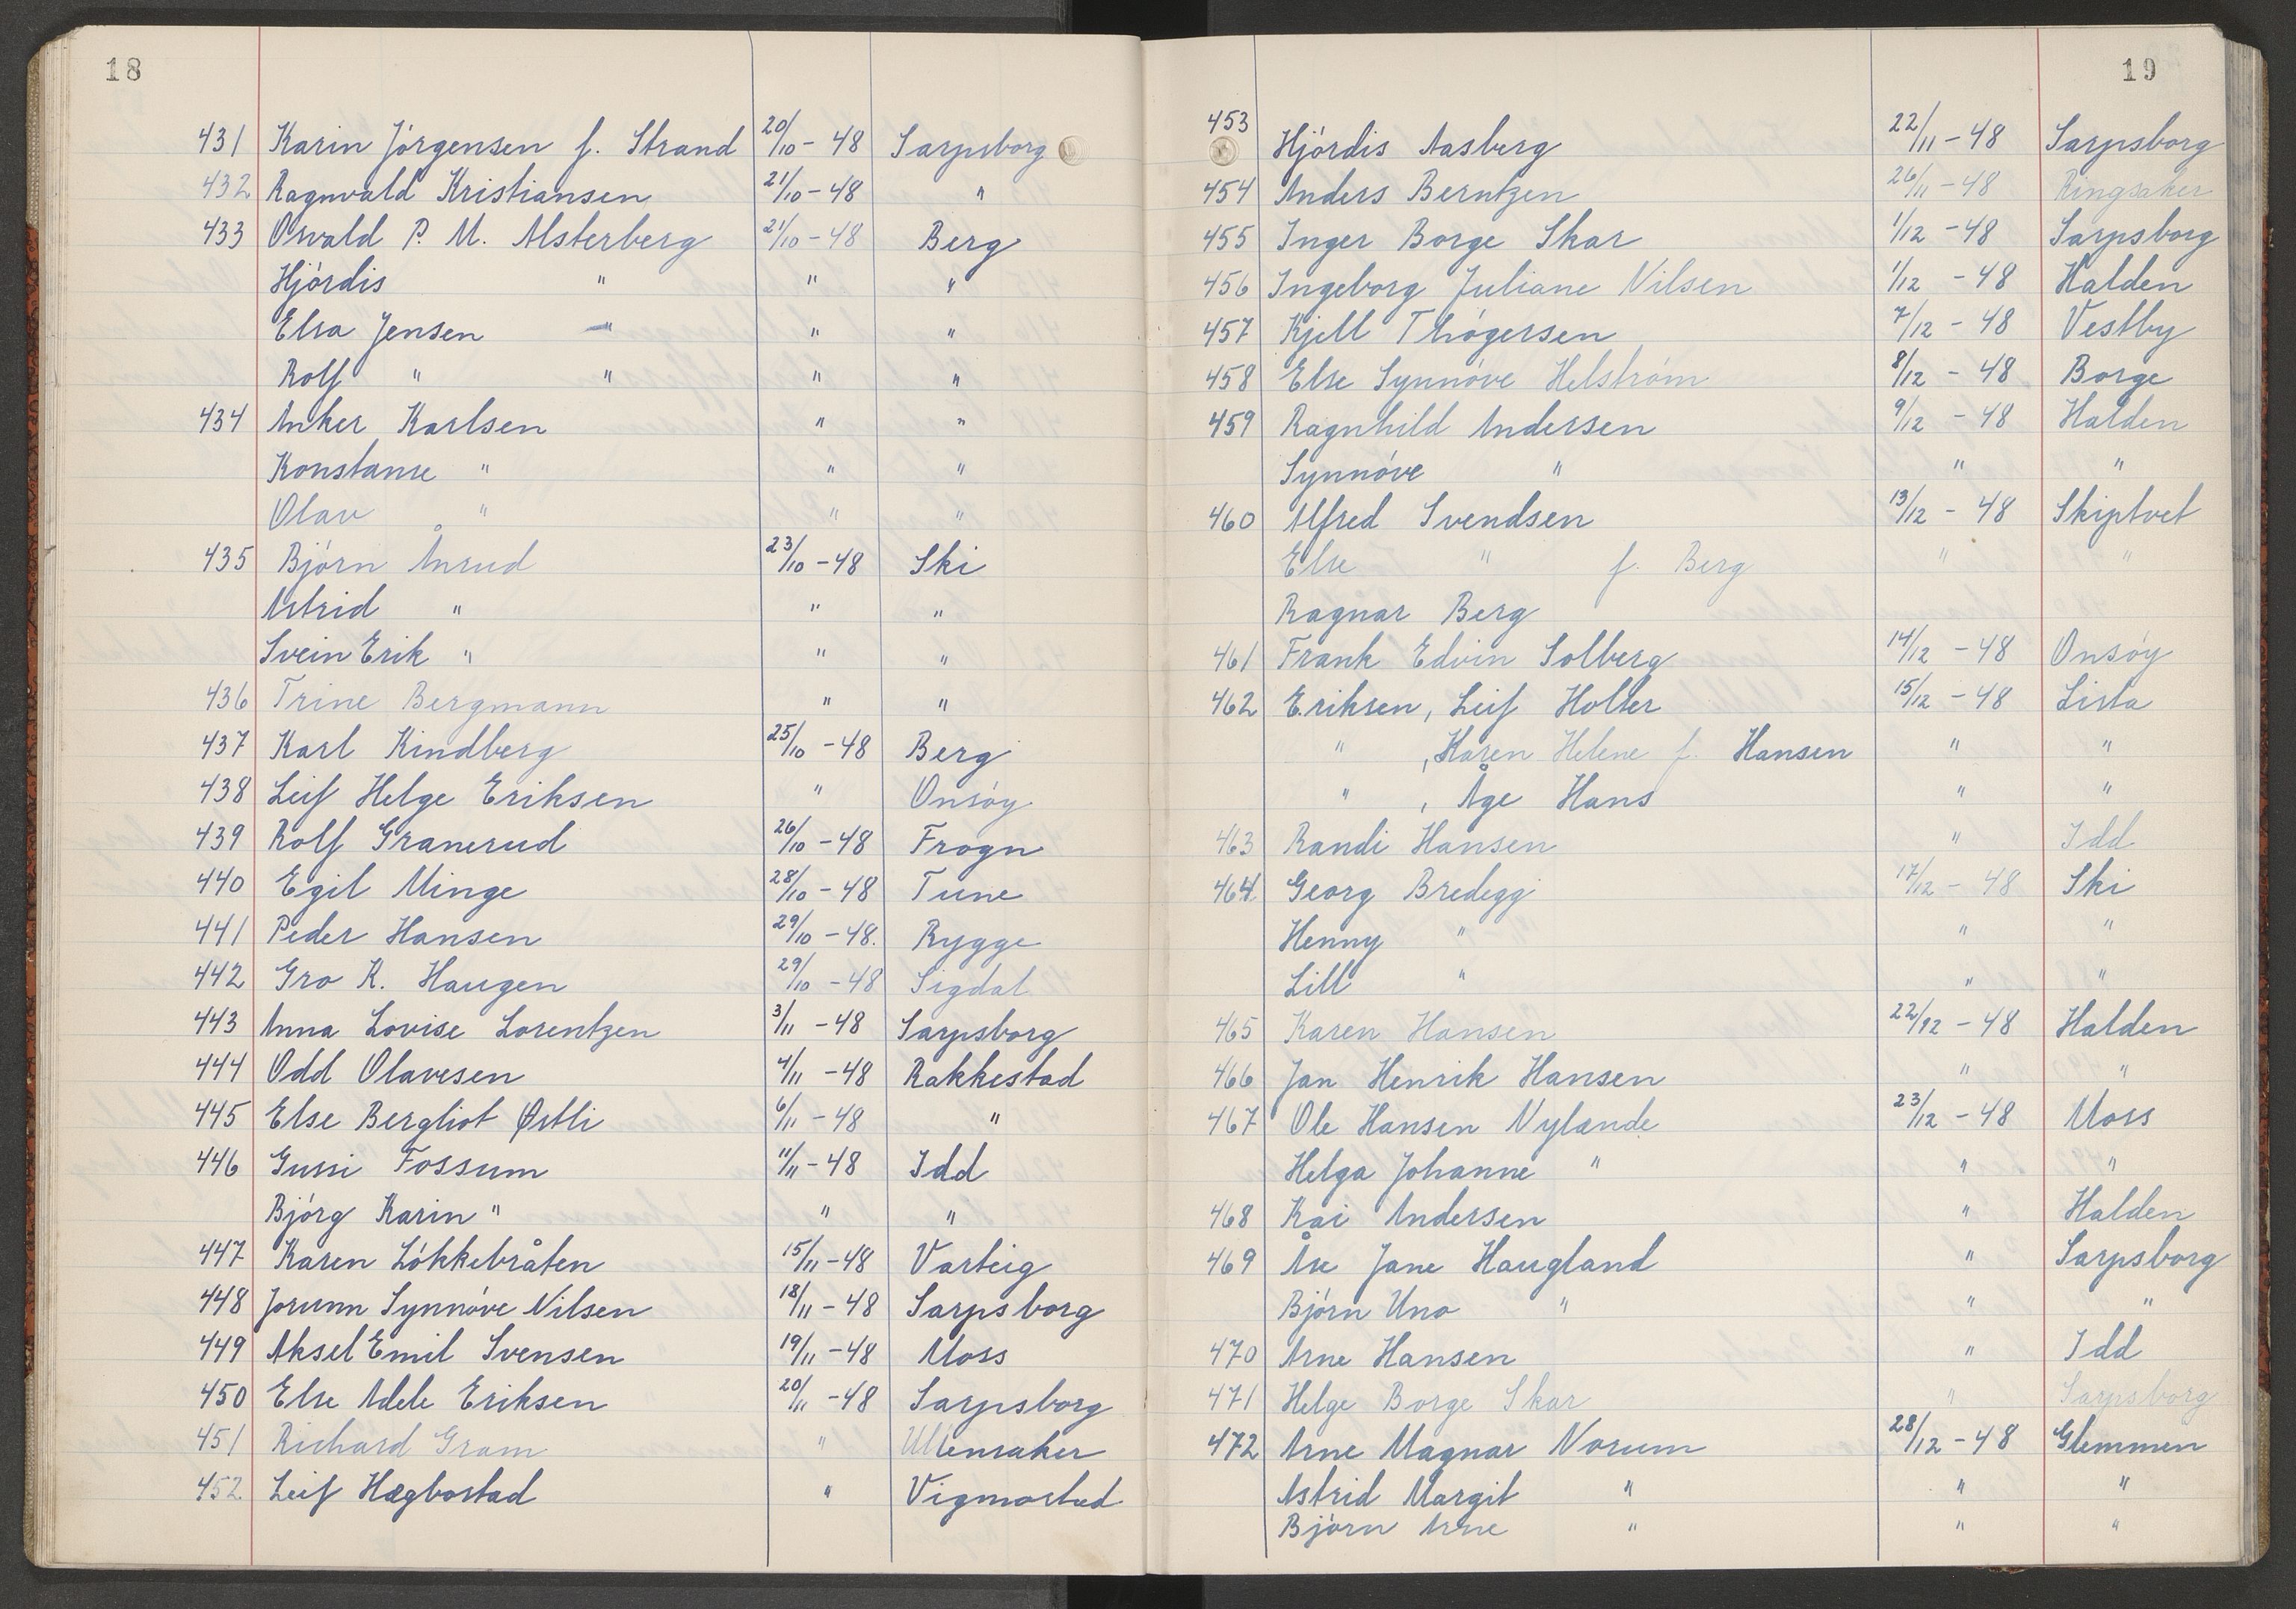 18
431 Karin Jórgensen f. Strand 20/10 - 48 Sarpsborg
432 Ragnvald Kristiansen 21/10 - 48 "
433 Osvald P. M. Alsterberg 21/10 - 48 Berg
Hjórdis " " "
Elsa Jensen " " "
Rolf " " " "
434 Anker Karlsen " "
Konstanse " " "
Olav " " "
435 Bjórn Ånrud 23/10 - 48 Ski
Astrid " " "
Svein Erik " " "
436 Trine Bergmann " "
437 Karl Kindberg 25/10 - 48 Berg
438 Leif Helge Eriksen " Onsóy
439 Rolf Granerud 26/10 - 48 Frogn
440 Egil Minge 28/10 - 48 Tune
441 Peder Hansen 29/10 - 48. Rygge
442 Gro K. Haugen 29/10 - 48 Sigdal
443 Anna Lovise Lorentzen 3/11 - 48 Sarpsborg
444 Odd Olavesen 4/11 - 48 Rakkestad
445 Else Bergliot Østli 6/11 - 48 "
446 Gussi Fossum 11/11 - 48 Idd
Bjórg Karin " " "
447 Karen Lókkebråten 15/11 - 48 Varteig
448 Jorunn Synnóve Nilsen 18/11 - 48 Sarpsborg
449 Aksel Emil Svensen 19/11 - 48 Moss
450 Else Adele Eriksen 20/11 - 48 Sarpsborg
451 Richard Gram " Ullensaker
452 Leif Hægbostad " Vigmostad
19
453 Hjórdis Aasberg 22/11 - 48 Sarpsborg
454 Anders Berntzen 26/11 - 48 Ringsaker
455 Inger Borge Skar 1/12 - 48 Sarpsborg
456 Ingeborg Juliane Nilsen 1/12 - 48 Halden
457 Kjell Thógersen 7/12 - 48 Vestby
458 Else Synnóve Helstróm 8/12 - 48 Borge
459 Ragnhild Andersen 9/12 - 48 Halden
Synnóve " " "
460 Alfred Svendsen 13/12 - 48 Skiptvet
Else " f. Berg " "
Ragnar Berg
461 Frank Edvin Solberg 14/12 - 48 Onsóy
462 Eriksen, Leif Holter 15/12 - 48 Lista
" , Karen Helene f. Hansen " "
" , Åge Hans " "
463 Randi Hansen " Idd
464. Georg Bredegg 17/12 - 48 Ski
Henny " " "
Lill " " "
465 Karen Hansen 22/12 - 48 Halden
466 Jan Henrik Hansen " "
467 Ole Hansen Nylænde 23/12 - 48 Moss
Helga Johanne " " "
468 Kai Andersen " Halden
469 Åse Jane Haugland " Sarpsborg
Bjórn Uno " " "
470 Arne Hansen " Idd
471 Helge Borge Skar " Sarpsborg
472 Arne Magnar Norum 28/12 - 48 Glemmen
Astrid Margit " " "
Bjórn Arne " " "